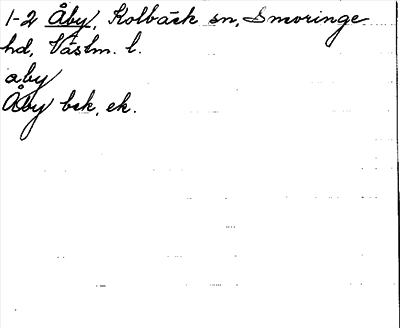 1-2 Åby, Kolbäck sn, Snevringe
hd, Västm. l.
aby
Åby bsk, ek.